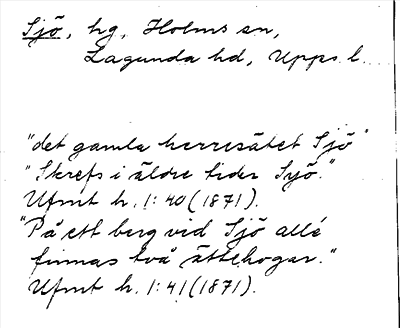 Sjö, hg, Holms sn,
Lagunda hd, Upps. l.
"det gamla herresätet Sjö"
"Skrefs i äldre tider Syö."
Ufmt h. 1: 40 (1871).
"På ett berg vid Sjö allé
finnas två ättehögar."
Ufmt h. 1: 41 (1871).